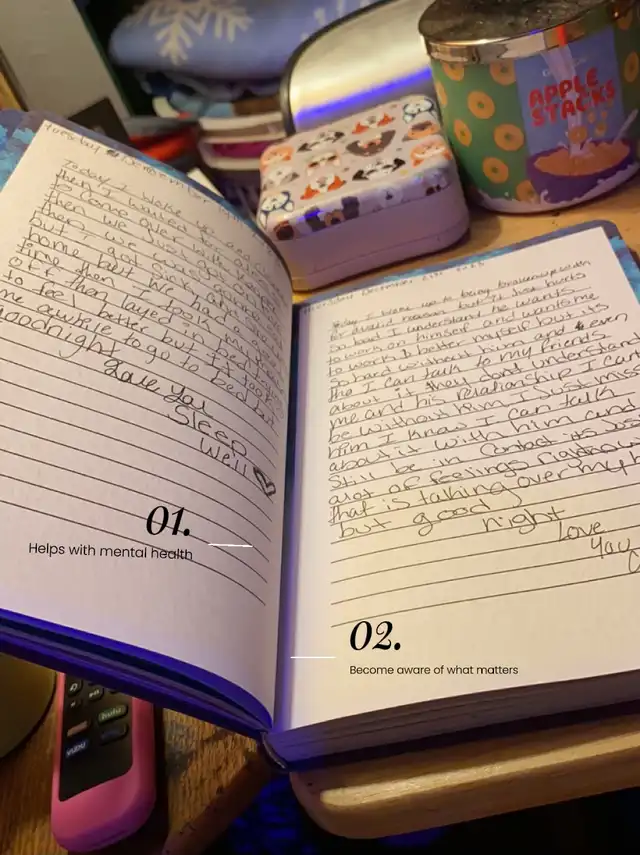 Tuesday December
Today I woke up and
then I waited for
to come over with
then we just got
but I got sick
home but we had a good
time then I took my
off then layed in bed
to feel better but it took
me awhile to go to bed but
goodnight
Love you
Sleep
Well
01.
Helps with mental health
December
today I woke up to being broken up with
for a valid reason but it how hurts
so bad I understand he wants
to work on himself and wants me
to work & better myself but its
so hard without him and even
tho I can talk to my friends
about it they dont understand
me and his relationship I can
be without him I just miss
him I know I can talk
about it with him and
still be in contact its just
alot of feelings right now
that is taking over my
but good night
Love
You
02.
Become aware of what matters
APPLE
STACKS
hulu
VUDU